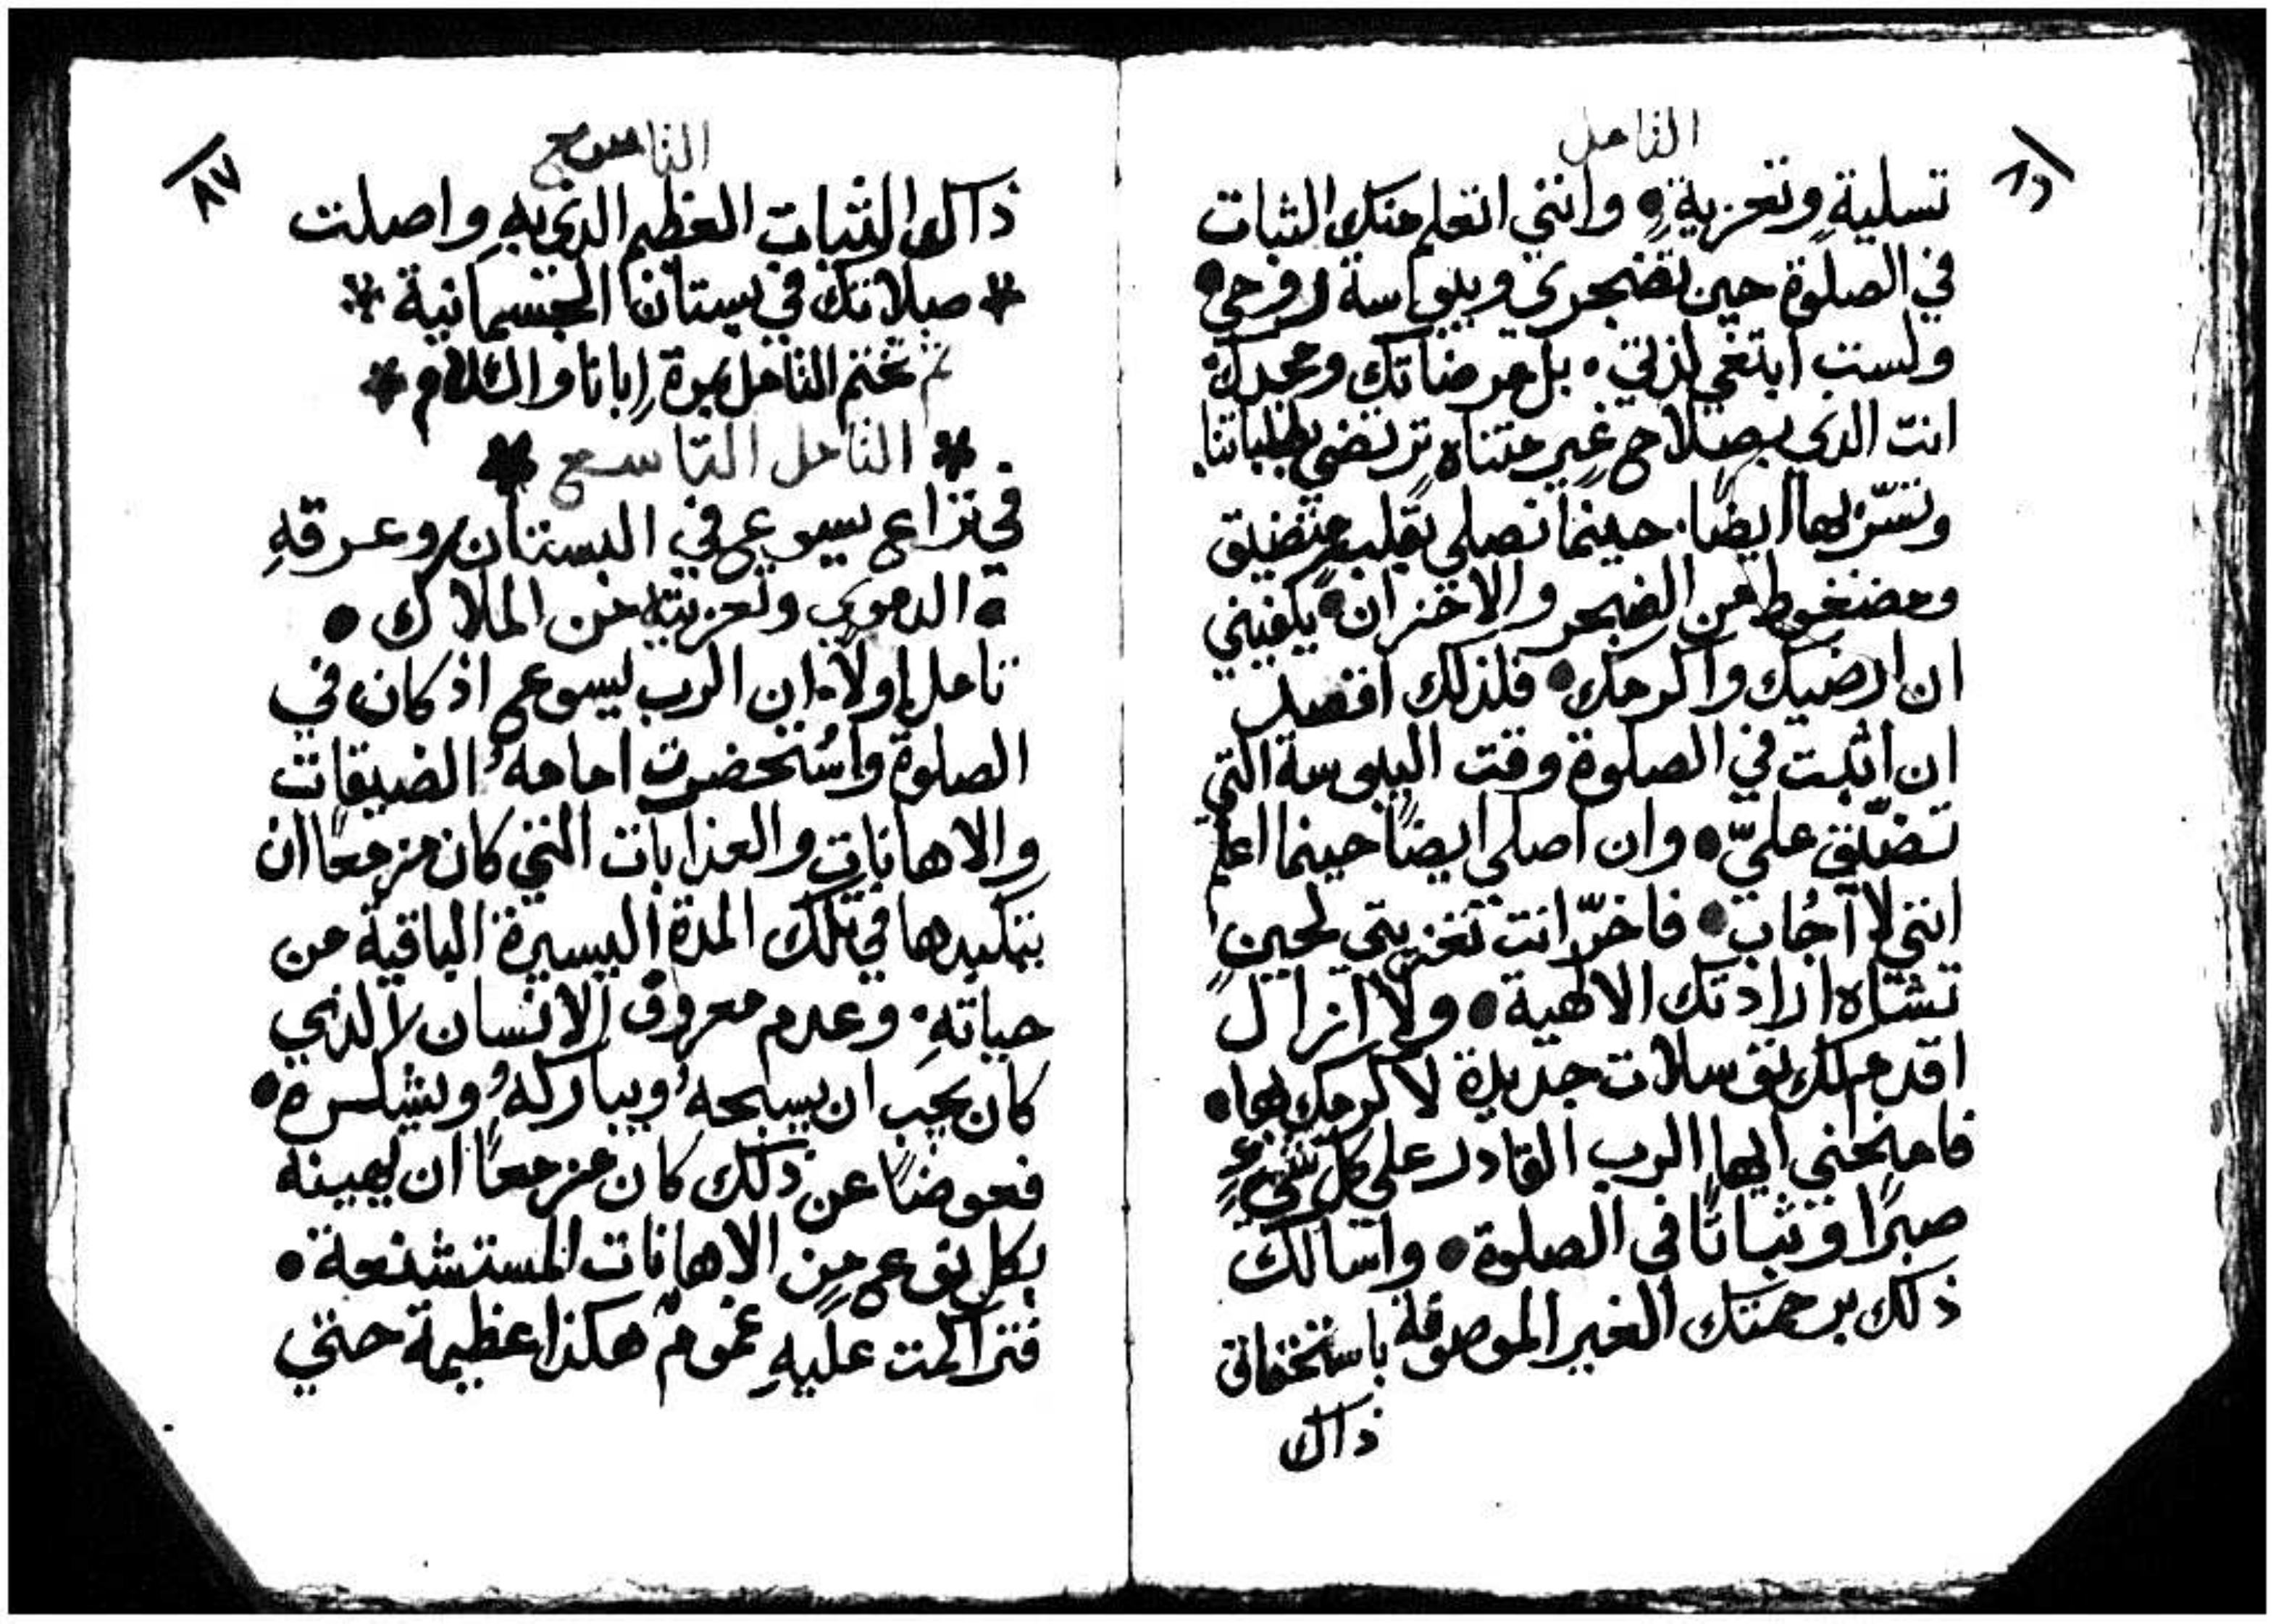 التامل
٨٦
تسلية وتعزية • وانني اتعلم منك الثبات
في الصلوة حين تضجري ويبوسة روحي •
ولست ابتغي لذتي • بل مرضاتك ومجدك
انت الذي بصلاح غير متناه ترتضي بطلباتنا
وتسّر بها ايضًا. حينما نصلي بقلب متضيق
ومضغوط من الضجر والاحزان • يكفيني
ان ارضيك واكرمك • فلذلك اقصد
ان اثبت في الصلوة وقت اليبوسة التي
تضيّق عليّ • وان اصلي ايضًا حينما اعلم
انني لا اُجاب • فاخّر انت تعزيتي لحين
تشاه ارادتك الالهية • ولا ازال
اقدم لك توسلات جديدة لاكرمك بها •
فامنحني ايها الرب القادر على كل شيءٍ
صبرًا وثباتًا في الصلوة • واسالك
ذلك برحمتك الغير الموصوفة باستحقاق
ذاك
التاسع
٨٧
ذاك الثبات العظيم الذي به واصلت
* صلاتك في بستان الجتسمانية *
ثم تختم التامل بمرة ابانا والسلام *
* التامل التاسع *
في نزاع يسوع في البستان وعرقهِ
• الدموي وتعزيته من الملاك •
تامل اولاً. ان الرب يسوع اذ كان في
الصلوة واُستحضرت امامهُ الضيقات
والاهانات والعذابات التي كان مزمعًا ان
يتكبدها في تلك المدة اليسيرة الباقية من
حياتهِ • وعدم معروف الانسان الذي
كان يجب ان يسبحهُ ويباركهُ ويشكره •
فعوضًا عن ذلك كان مزمعًا ان يهينه
بكل نوع من الاهانات المستشنعة •
فتراكمت عليهِ غموم هكذا عظيمة حتي